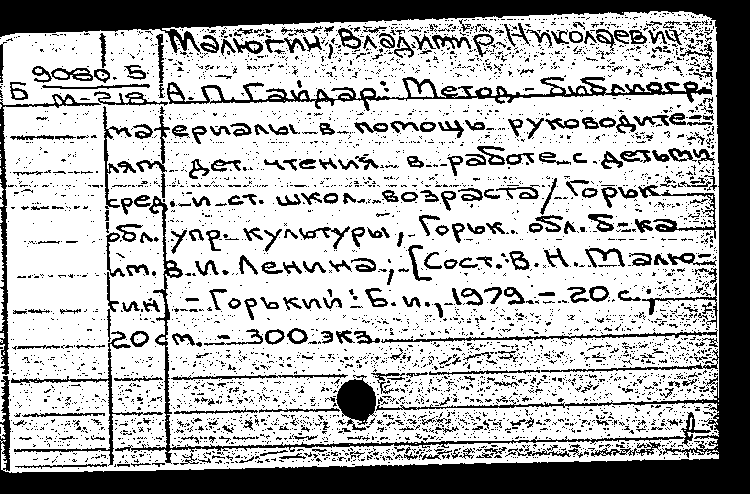 Малюгин, Владимир Николаевич
Б 9080.Б
М-218
А.П. Гайдар: Метод.-библиогр.
материалы в помощь руководите-
лям дет. чтения в работе с детьми
сред. и ст. школ. возраста / Горьк.
обл. упр. культуры, Горьк. обл. б-ка
им. В.И. Ленина; [Сост.: В.Н. Малю-
гин] - Горький: Б.и., 1979. - 20 с.;
20 см. - 300 экз.